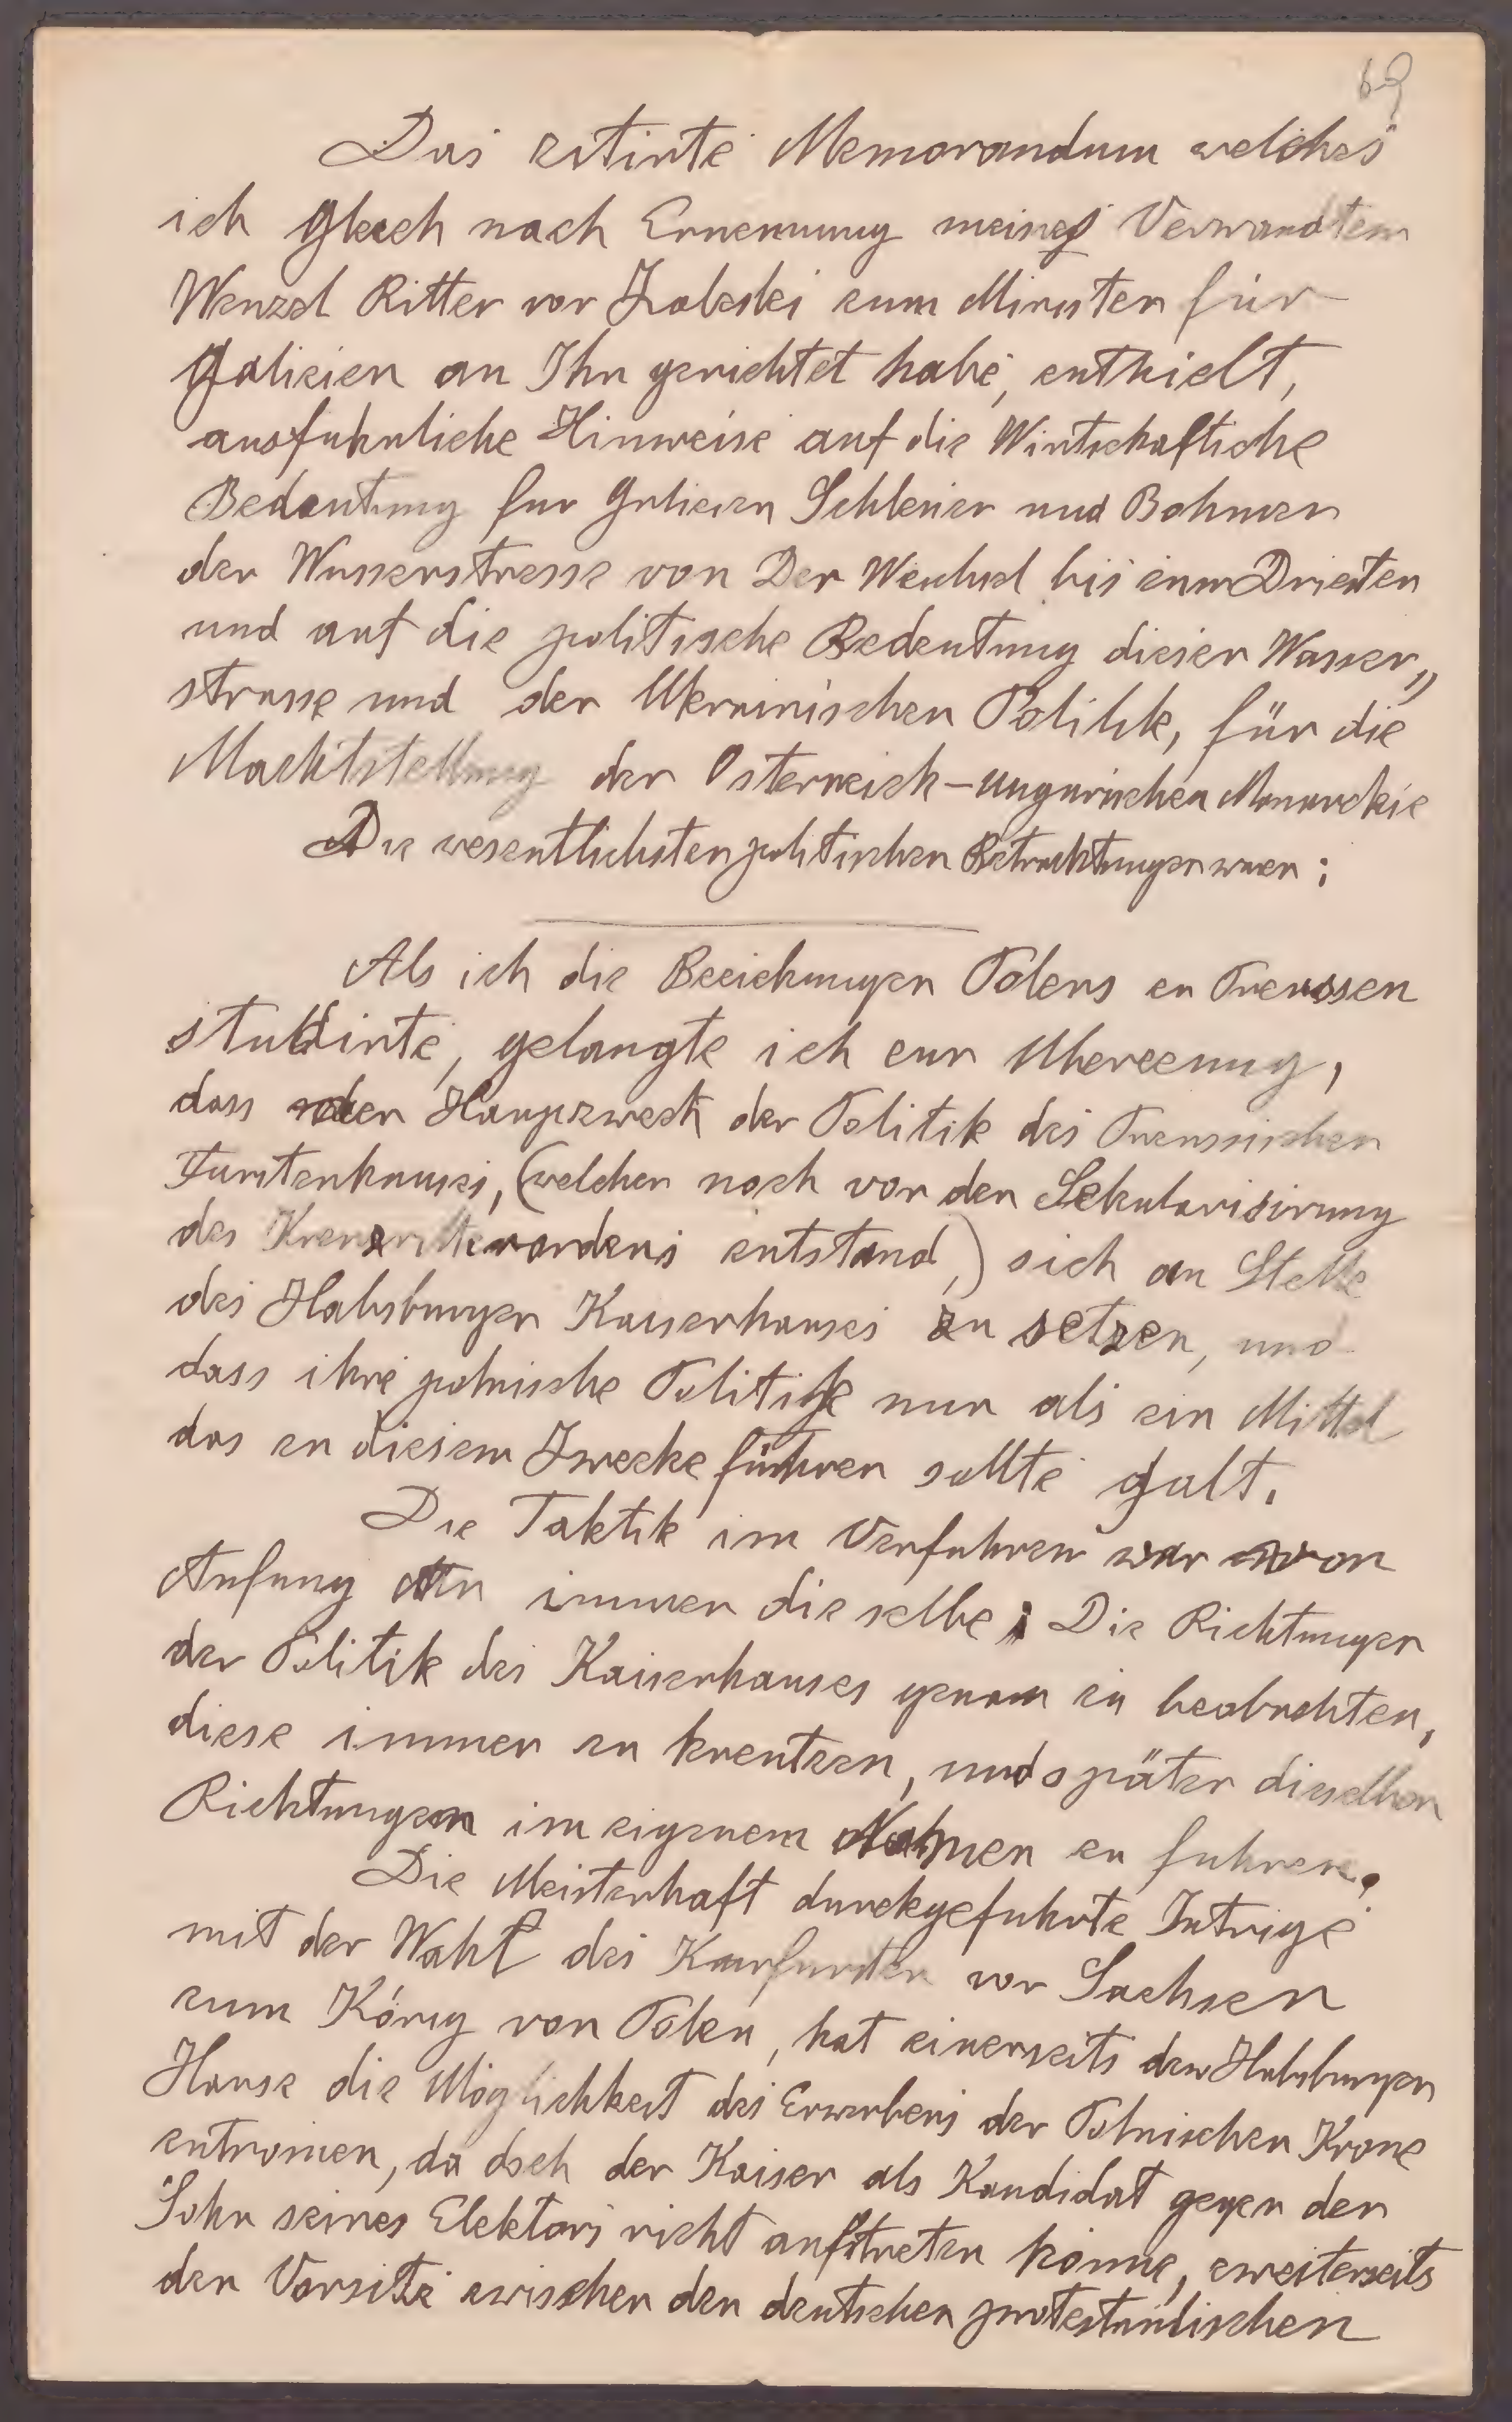 69
Das zitirte Memorandum welches
ich gleich nach Ernennung meines Verwandten
Wenzel Ritter von Zaleski zum Minister für
Galizien an Ihn gerichtet habe, enthielt,
ausfuhrliche Hinweise auf die Wirtschaftliche
Bedeutung fur Galizien Schlesien und Bohmen
der Wasserstrasse von Der Weichsel bis zum Dniester
und auf die politische Bedeutung dieser Wasser„
strasse und der Ukrainischen Politik, für die
Machtstellung der Osterreich-Ungarischen Monarchie
Die wesentlichsten politischen Betrachtungen waren:
Als ich die Beziehungen Polens zu Preussen
studirte, gelangte ich zur Uberzeung,
dass der Haupzweck der Politik des Preussischen
Furstenhauses, (welcher noch vor der Sekularisirung
des Kreuzritterordens entstand,) sich an Stelle
des Habsburger Kaiserhauses zu setzen, und
dass ihre polnische Politik nur als ein Mittel
das zu diesem Zwecke führen sollte galt.
Die Taktik im Verfahren war von
Anfang an immer die selbe: Die Richtungen
der Politik des Kaiserhauses genau zu beobachten,
diese immer zu kreutzen, und später dieselben
Richtungen im eigenem Nahmen zu fuhren.
Die Meisterhaft durchgefuhrte Intrige
mit der Wahl des Kurfursten von Sachsen
zum König von Polen, hat einerseits dem Habsburger
Hause die Möglichkeit des Erwerbens der Polnischen Krone
entnomen, da doch der Kaiser als Kandidat gegen den
Sohn seines Elektors nicht auftreten könne, zweiterseits
den Vorsitz zwischen den deutschen protestantischen